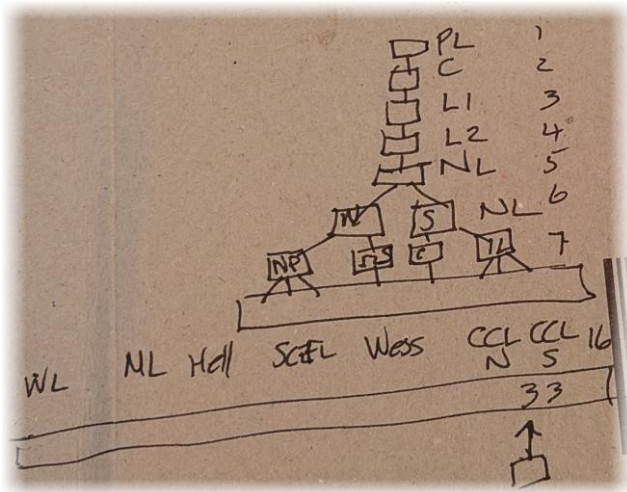 PL 1
C 2
L1 3
L2 4
NL 5
6
N S NL
7
NP C
WL NL Hell SCEFL Wess CCL CCL 16
N S
33